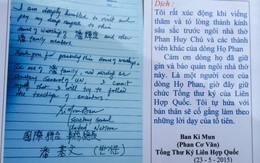 I am deeply humbled to visit and
pay my
house of worship of 潘輝益 and other
Phan family members.
Thank you for preserving this house of worship.
As a
I
that I will try to follow
the teachings of ancestors
Ki Moon Ban
Secretary General
United Nations
潘基文
Dịch:
Tôi rất xúc động khi viếng
thăm và tỏ lòng thành kính
sâu sắc trước ngôi nhà thờ
Phan Huy Chú và các thành
viên khác của dòng Họ Phan.
Cảm ơn dòng họ đã giữ
gìn và bảo quản ngôi nhà thờ
này. Là một người con của
dòng họ Phan, giờ đây giữ
chức Tổng Thư ký của Liên
Hợp Quốc. Tôi tự hứa với
bản thân sẽ cố gắng làm theo
những lời dạy của tổ tiên.
Ban Ki Mun
(Phan Cơ Văn)
Tổng Thư Ký Liên Hợp Quốc
(23 - 5 - 2015)